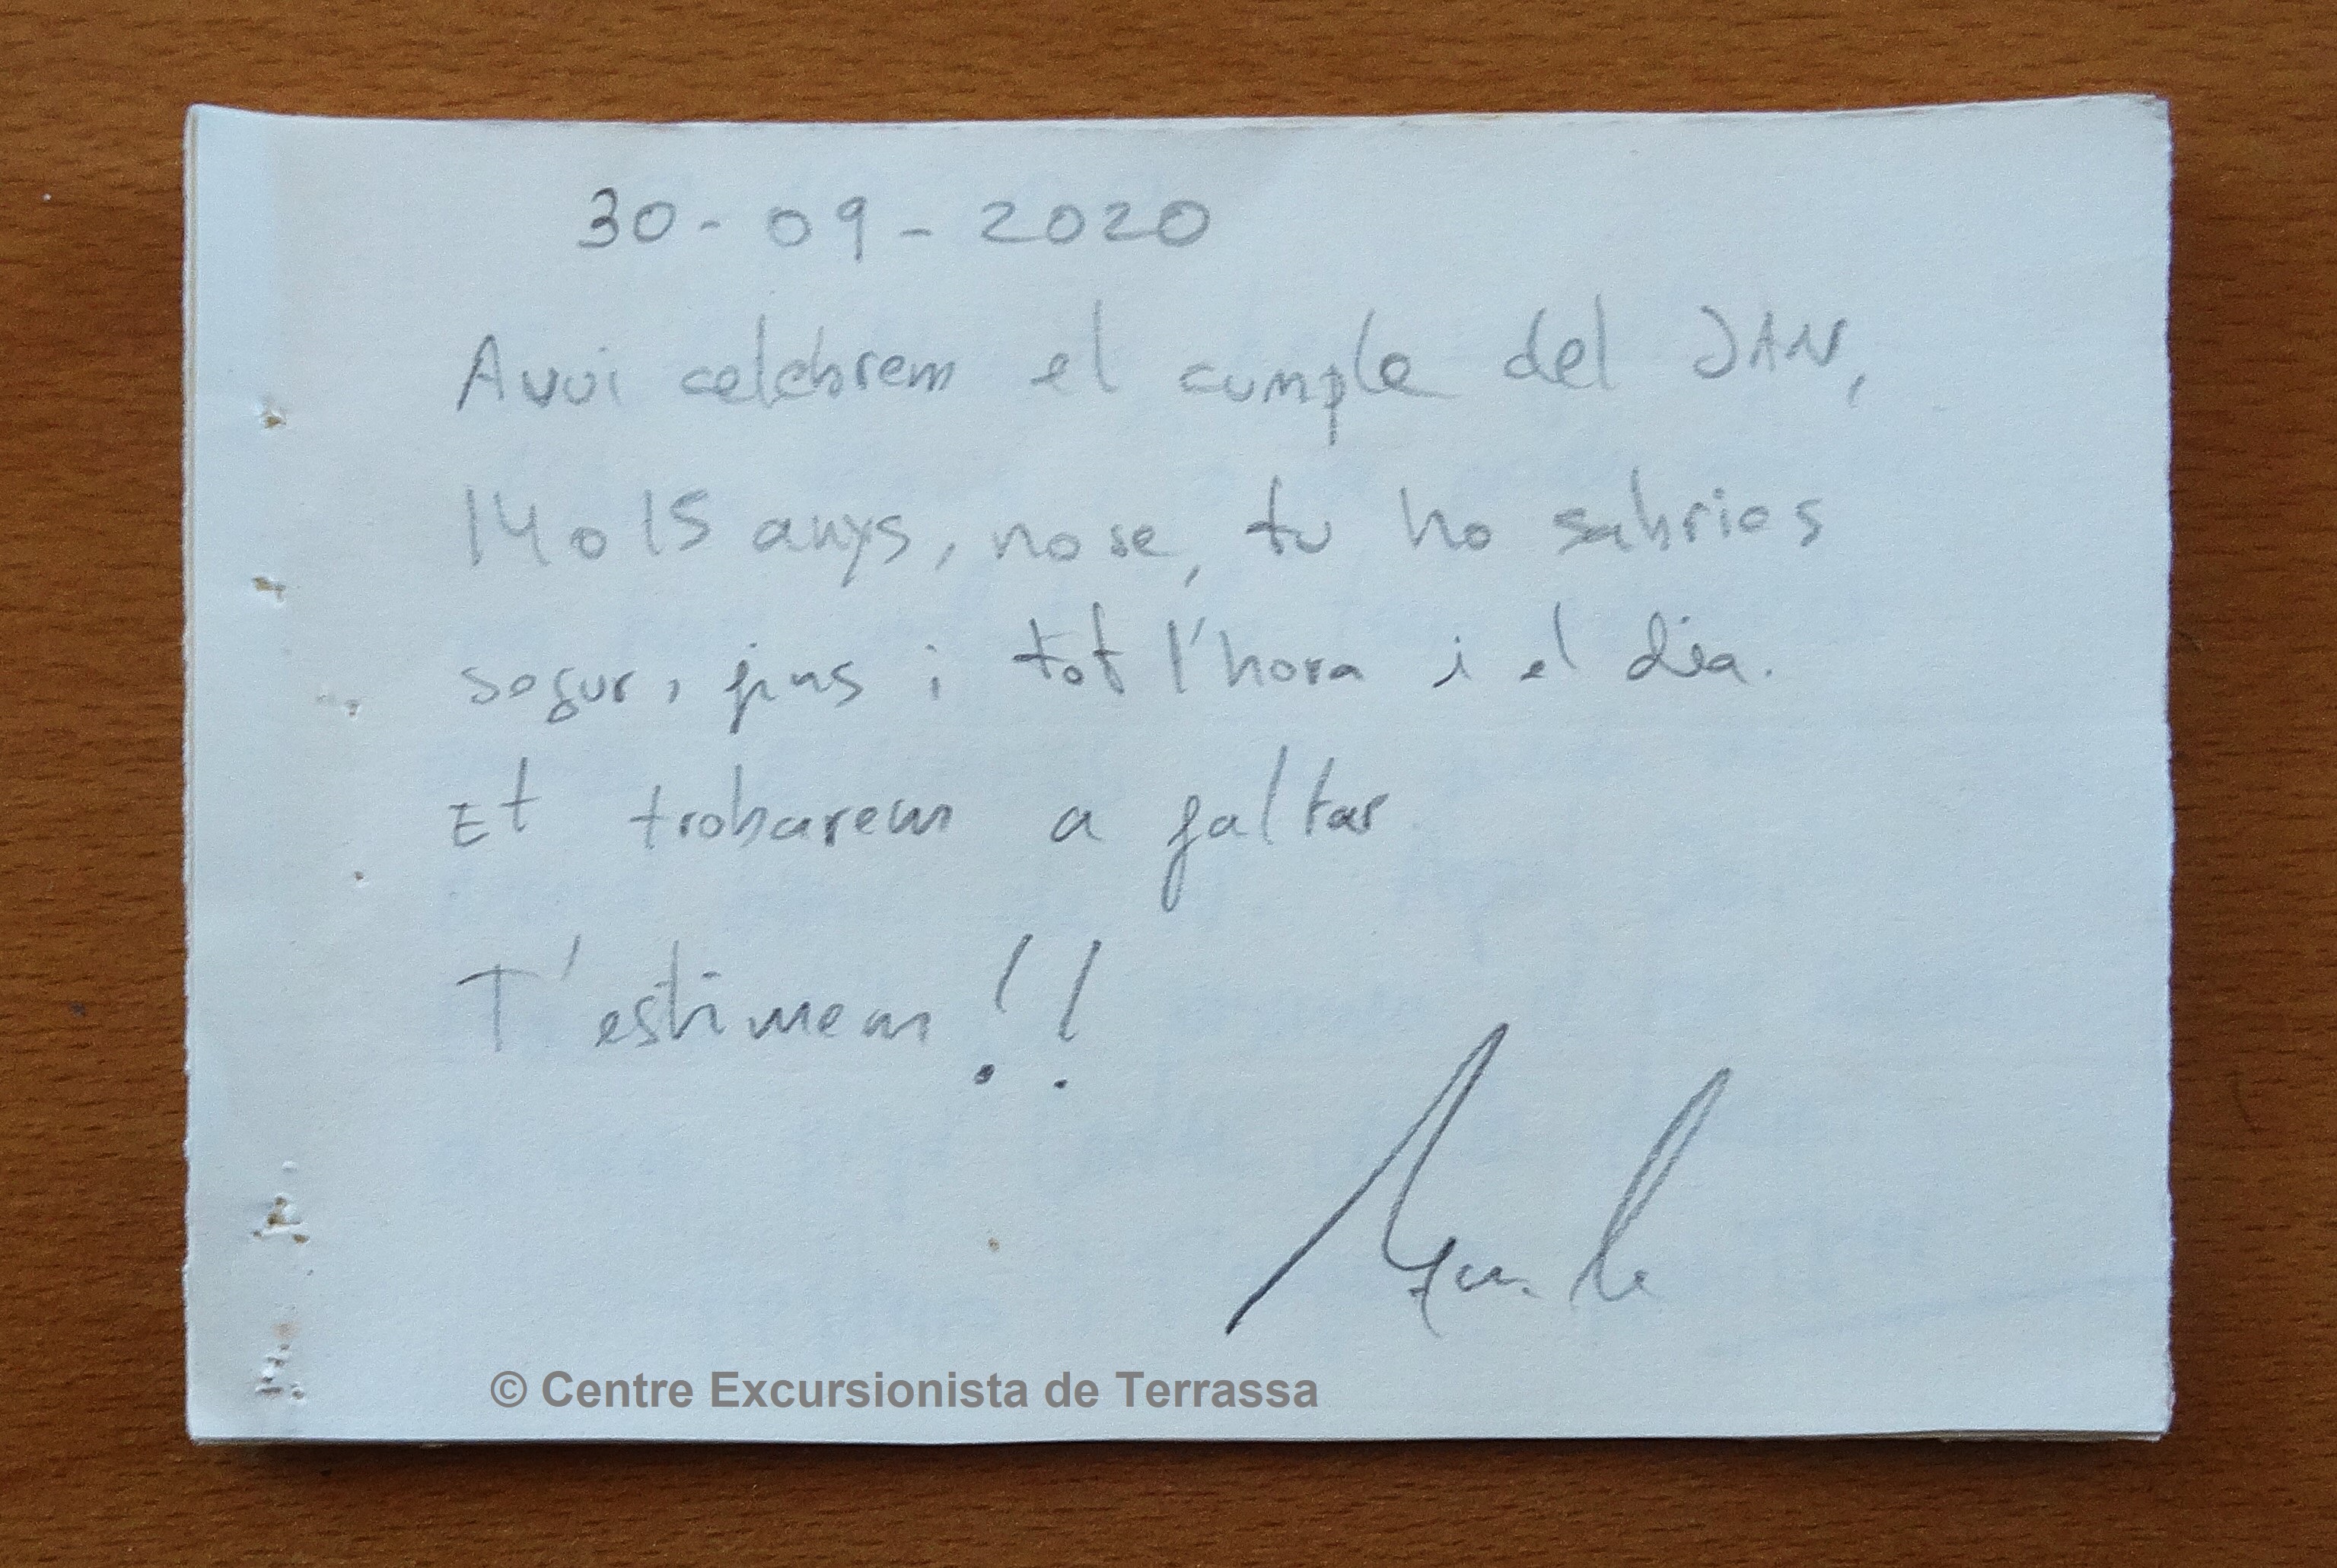 30-09-2020
Avui celebrem el cumple del JAN,
14 o 15 anys, no se, tu ho sabries
segur, fins i tot l'hora i el dia.
Et trobarem a faltar
T'estimem!!
© Centre Excursionista de Terrassa